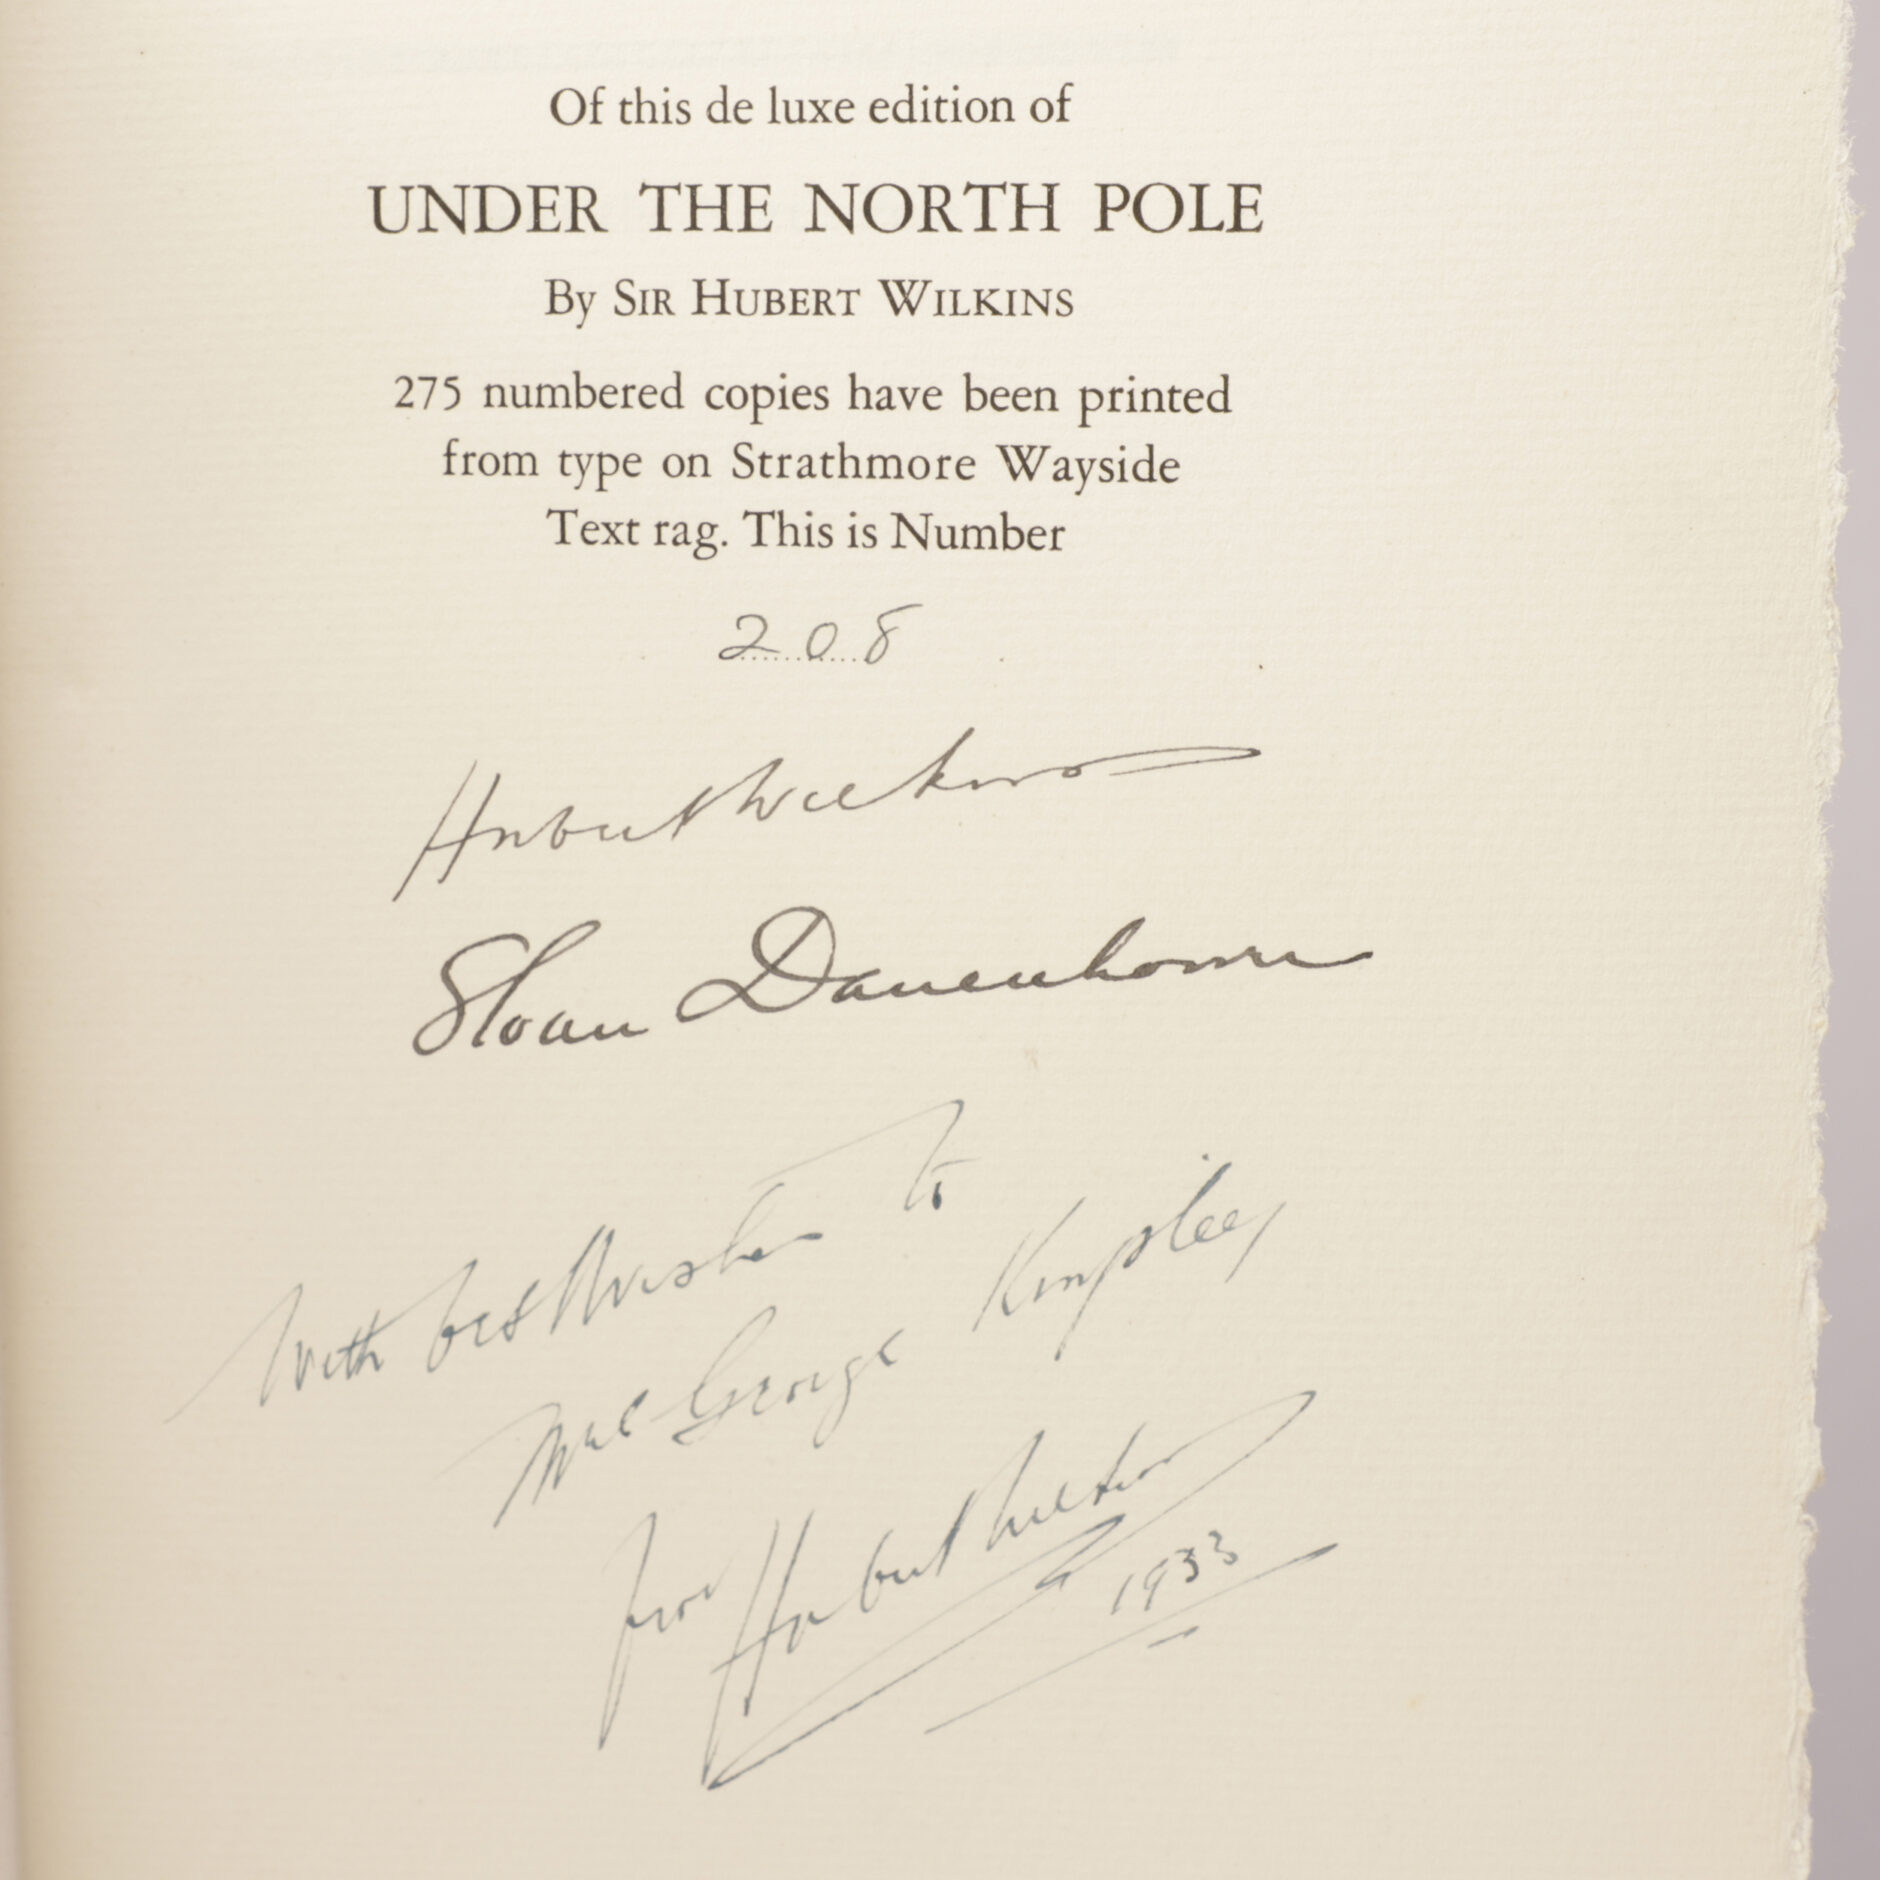 Of this de luxe edition of
UNDER THE NORTH POLE
By SIR HUBERT WILKINS
275 numbered copies have been printed
from type on Strathmore Wayside
Text rag. This is Number
208
Hubert Wilkins
Sloan Danenhower
With best Wishes to
George
from Hubert Wilkins
1933